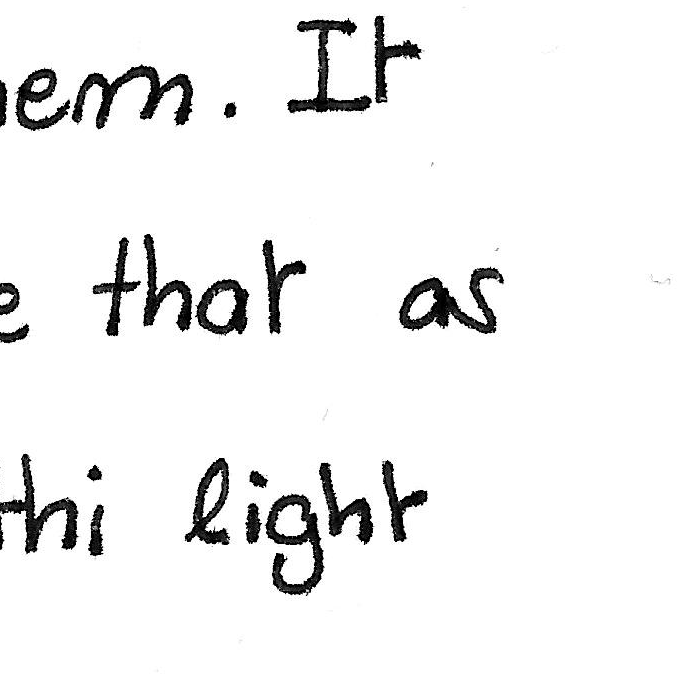 hem. It
e that as
thi light